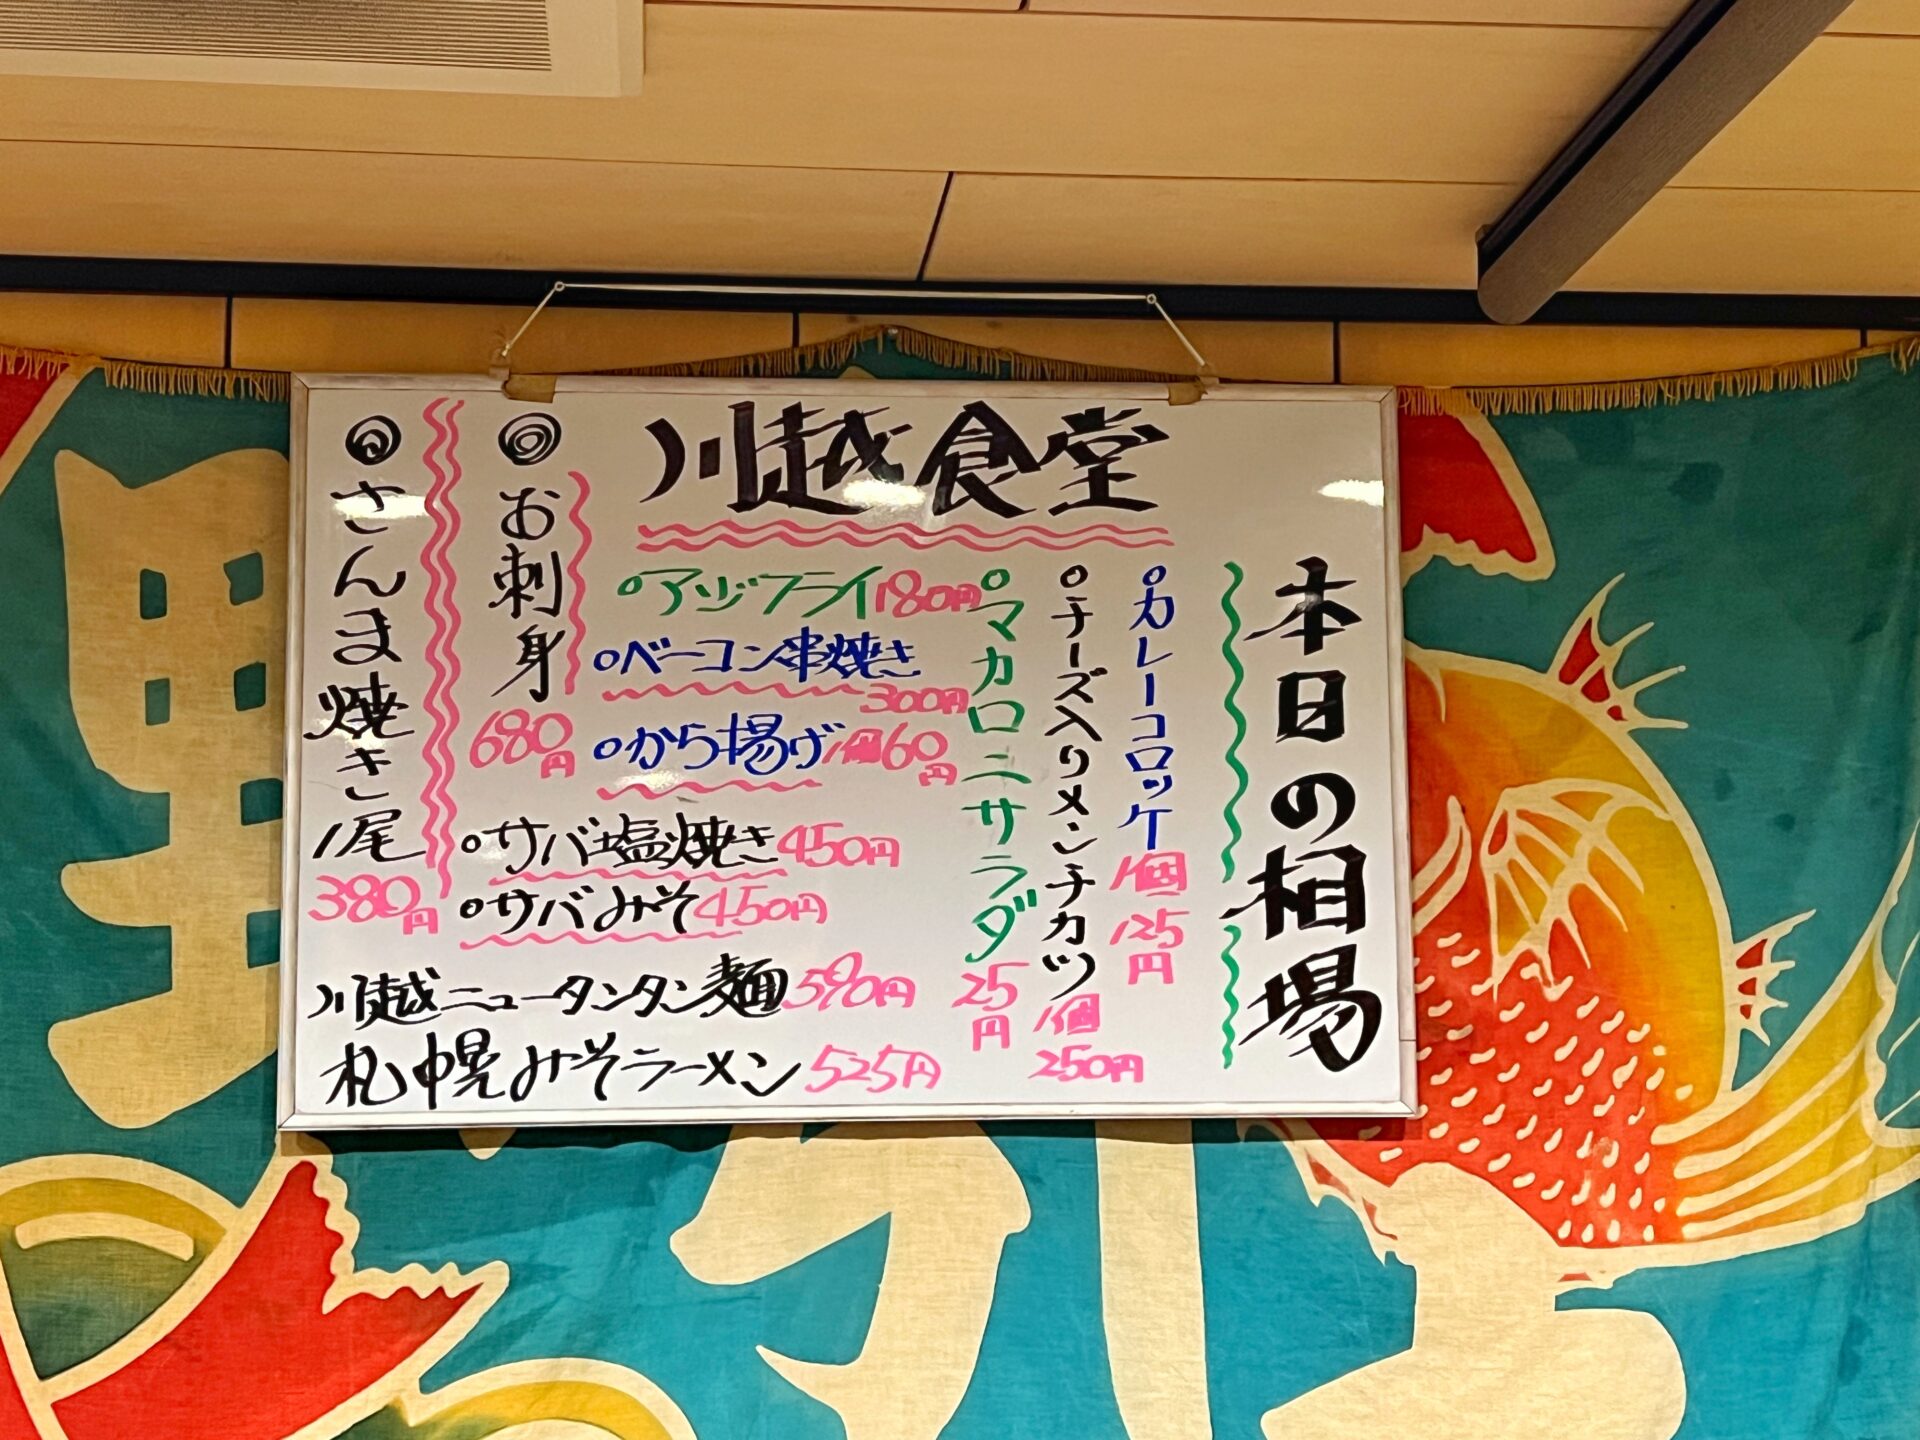 川越食堂
本日の相場
カレーコロッケ
1個
125円
チーズ入りメンチカツ
1個
250円
マカロニサラダ
25円
アジフライ180円
ベーコン串焼き
300円
から揚げ1個60円
◎お刺身
680円
サバ塩焼き450円
サバみそ450円
◎さんま焼き1尾
380円
川越ニュータンタン麺590円
札幌みそラーメン525円